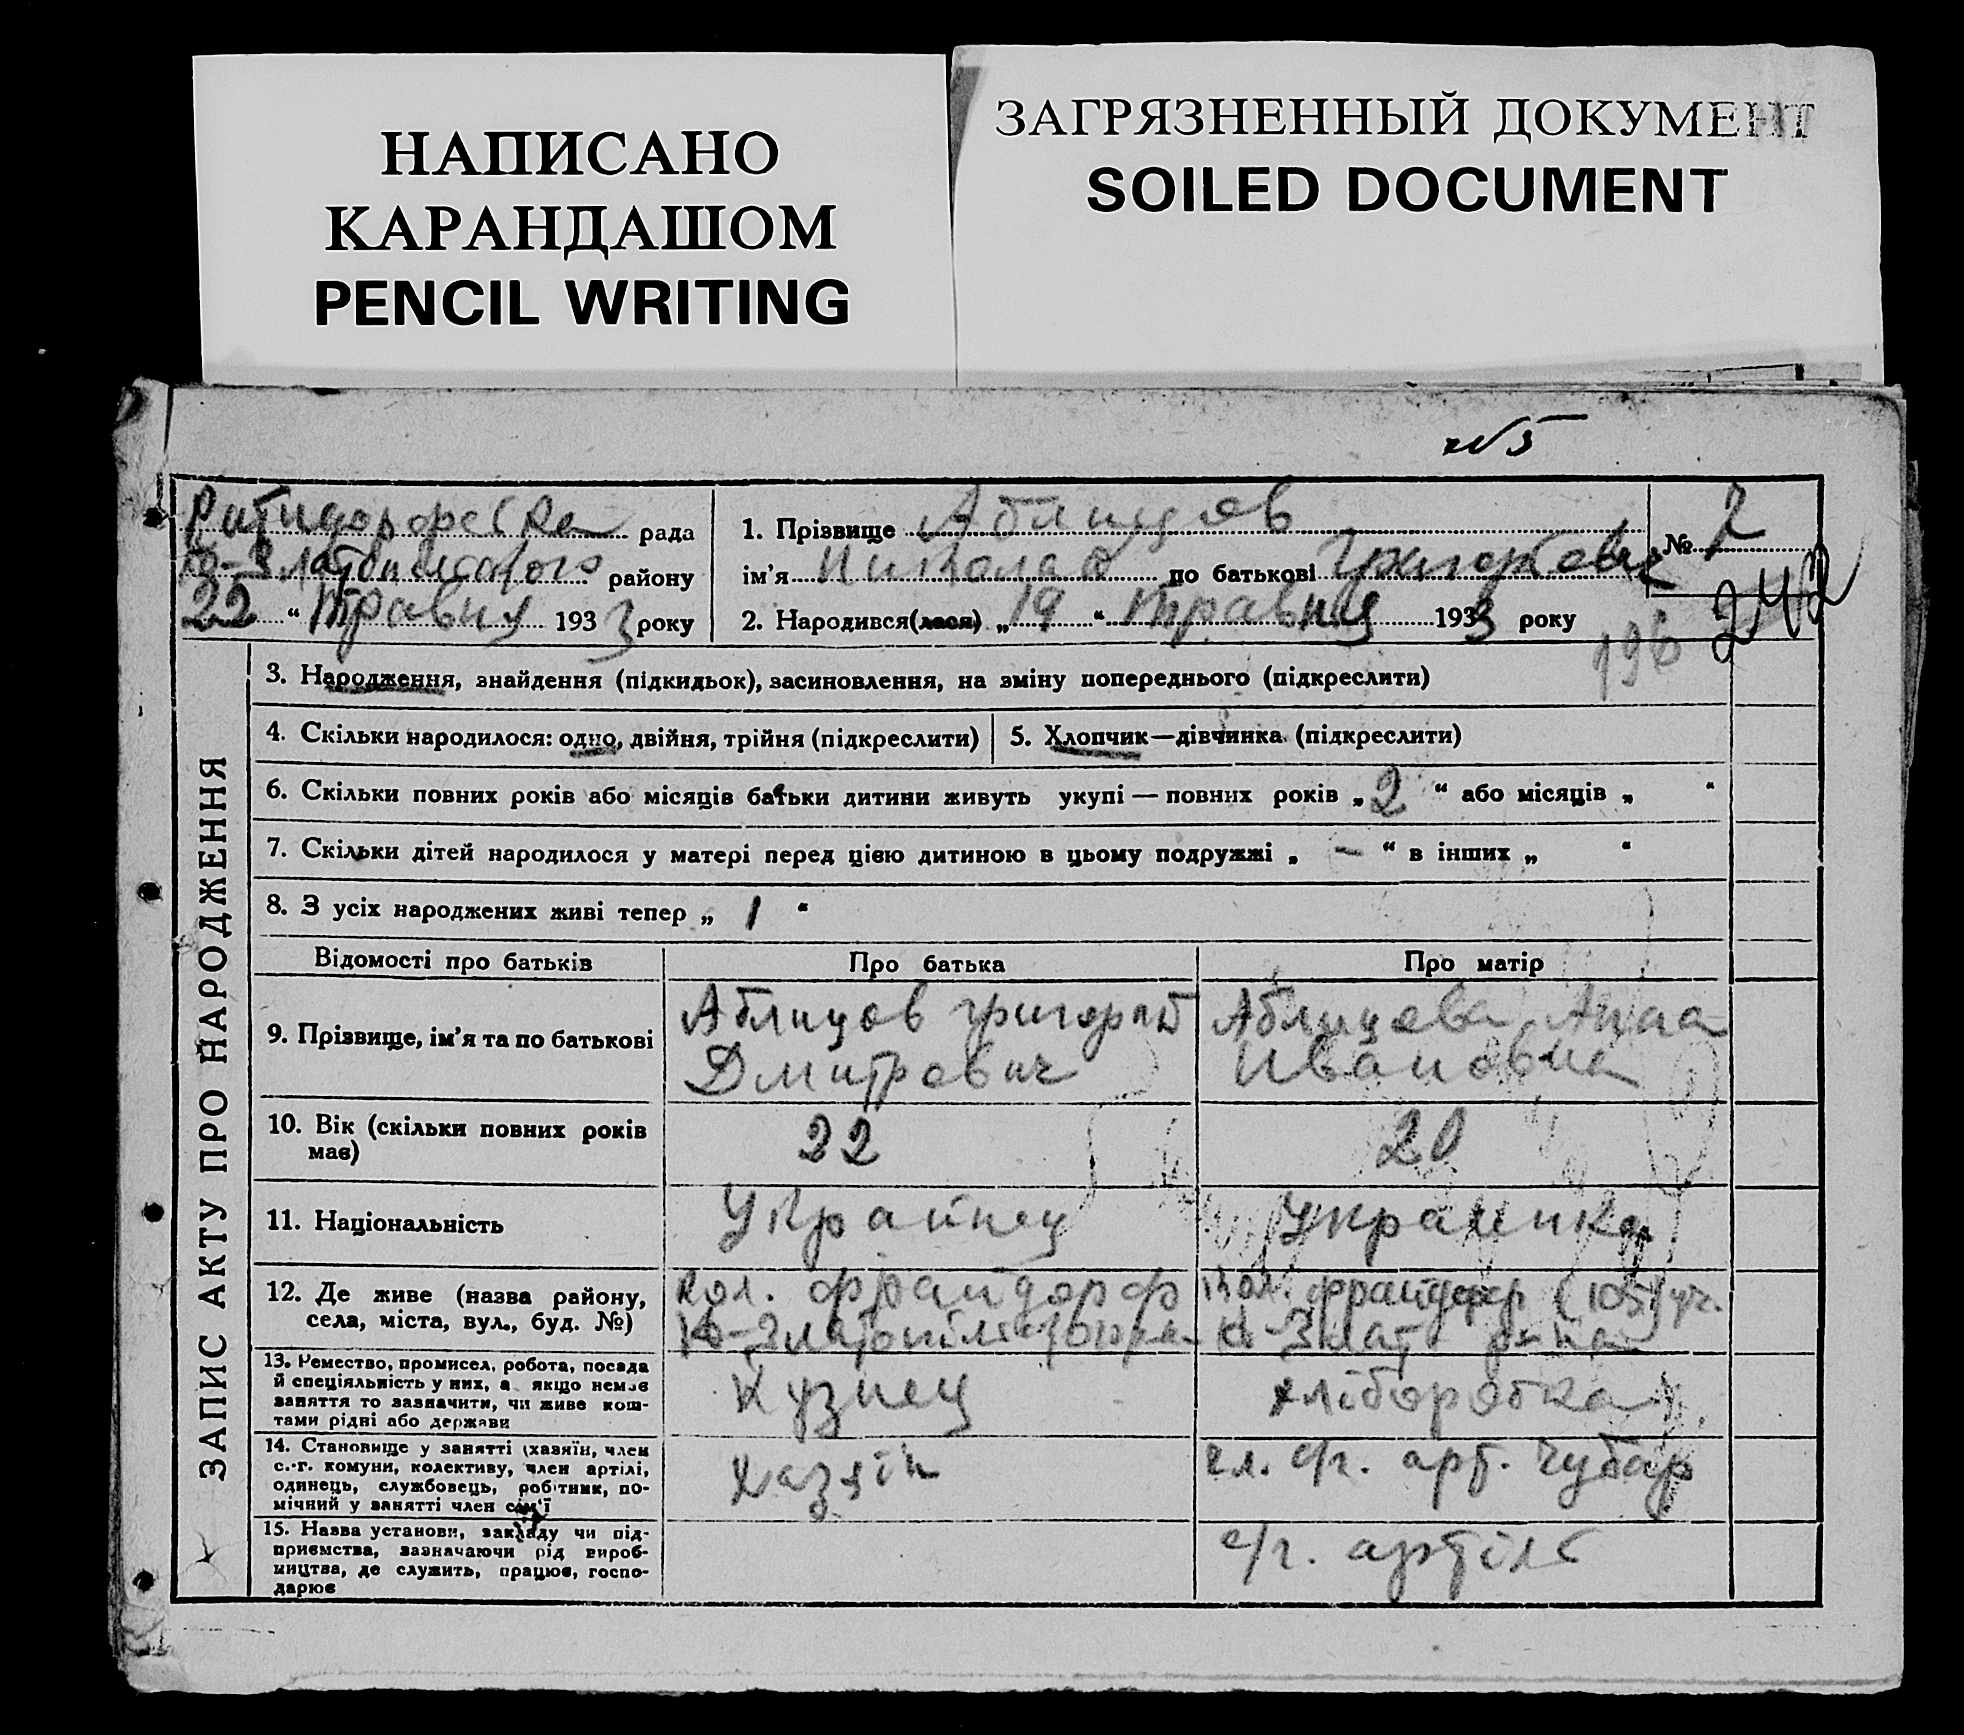 НАПИСАНО
КАРАНДАШОМ
PENCIL WRITING
ЗАГРЯЗНЕННЫЙ ДОКУМЕНТ
SOILED DOCUMENT
№ 5
ЗАПИС АКТУ ПРО НАРОДЖЕННЯ
рада
К-Златопільского району
22 “ травня 1933 року
1. Прізвище Аблицов
ім’я Николай по батькові Григорович
2. Народився(лася) „ 19 “ травня 1933 року
№ 2
242
196
3. Народження, знайдення (підкидьок), засиновлення, на зміну попереднього (підкреслити)
4. Скільки народилося: одно, двійня, трійня (підкреслити)
5. Хлопчик—дівчинка (підкреслити)
6. Скільки повних років або місяців батьки дитини живуть укупі — повних років „ 2 “ або місяців „ “
7. Скільки дітей народилося у матері перед цією дитиною в цьому подружжі „ — “ в інших „ “
8. З усіх народжених живі тепер „ 1 “
Відомості про батьків
Про батька
Про матір
9. Прізвище, ім’я та по батькові
Аблицов Григорий
Дмитрович
Аблицова Анна
Ивановна
10. Вік (скільки повних років
має)
22
20
11. Національність
Украинец
Украинка
12. Де живе (назва району,
села, міста, вул., буд. №)
кол. Фрайдорф
К-Златопільского р-на
кол. Фрайдорф (105) уч.
К-Злат р-на
13. Ремество, промисел, робота, посада
й спеціяльність у них, а якщо немає
заняття то зазначити, чи живе кош-
тами рідні або держави
Кузнец
хліборобка
14. Становище у занятті (хазяїн, член
с.-г. комуни, колективу, член артілі,
одинець, службовець, робітник, по-
мічний у занятті член сім’ї
Хазяїн
чл. с/г. арт. Чубар
15. Назва установи, закладу чи під-
приємства, зазначаючи рід вироб-
ництва, де служить, працює, госпо-
дарює
с/г. артіль